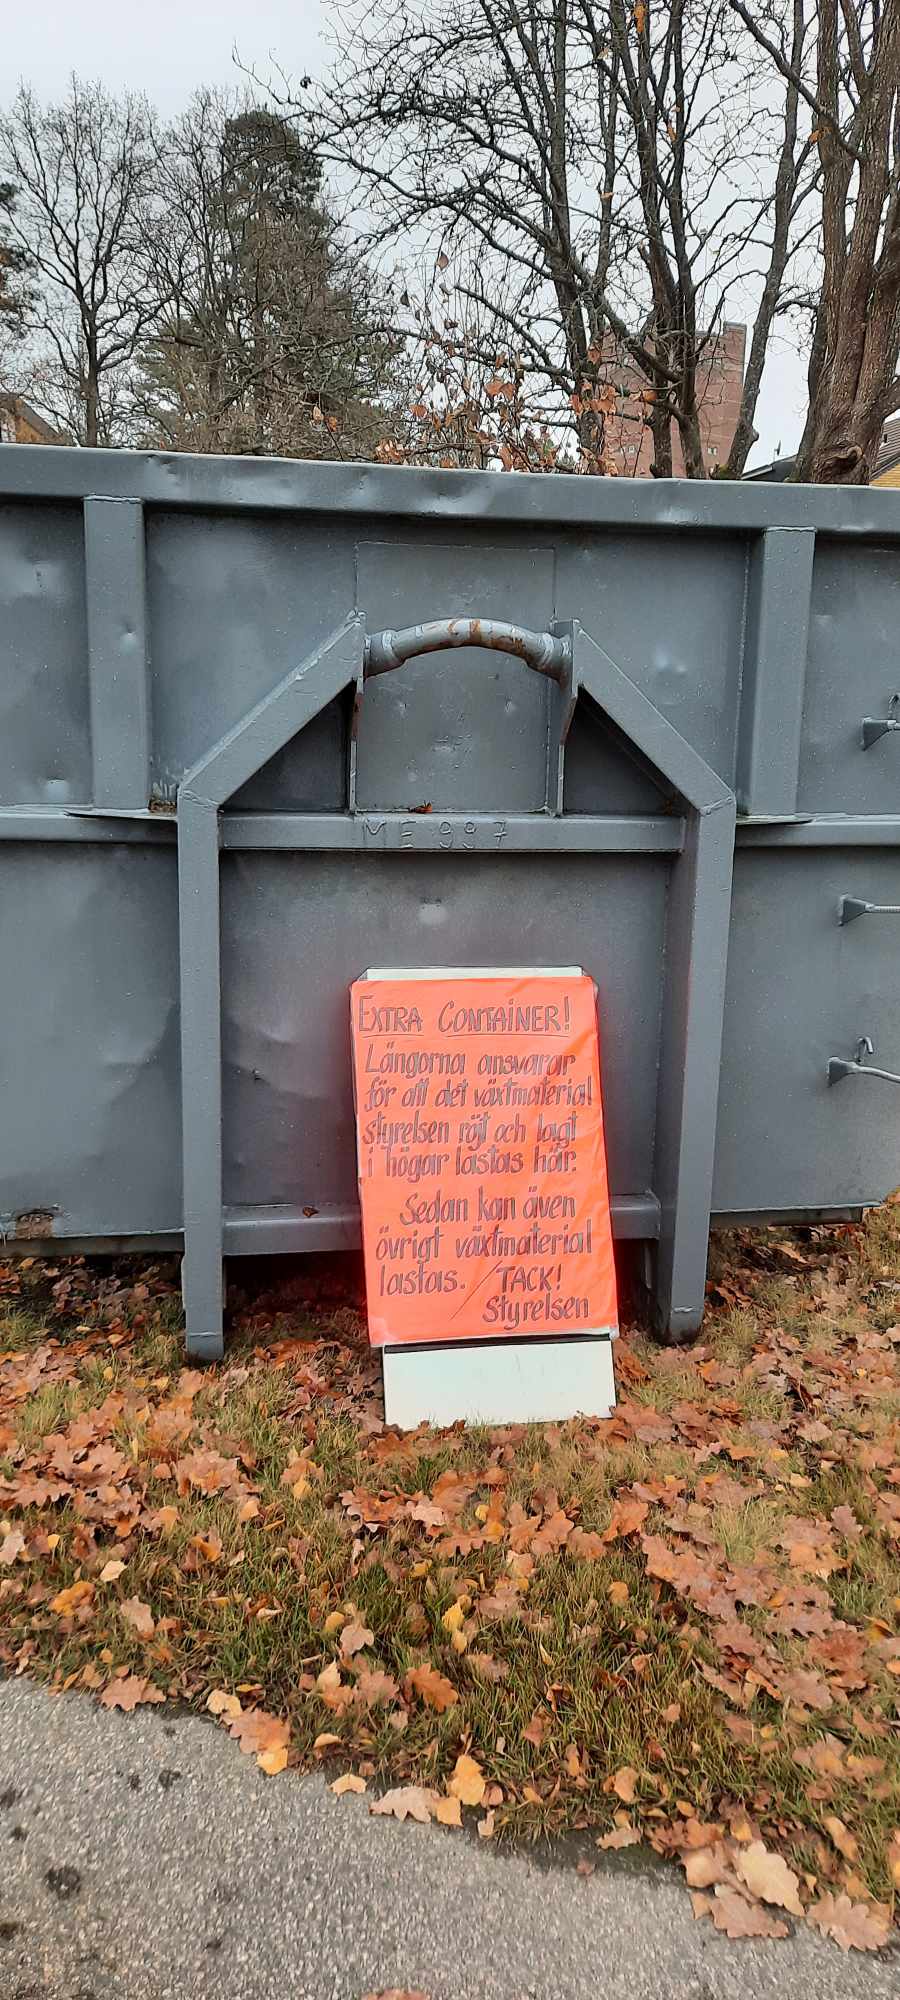 ME 997
EXTRA CONTAINER!
Längorna ansvarar
för att det växtmaterial
styrelsen röjt och lagt
i högar lastas här.
Sedan kan även
övrigt växtmaterial
lastas. / TACK!
Styrelsen